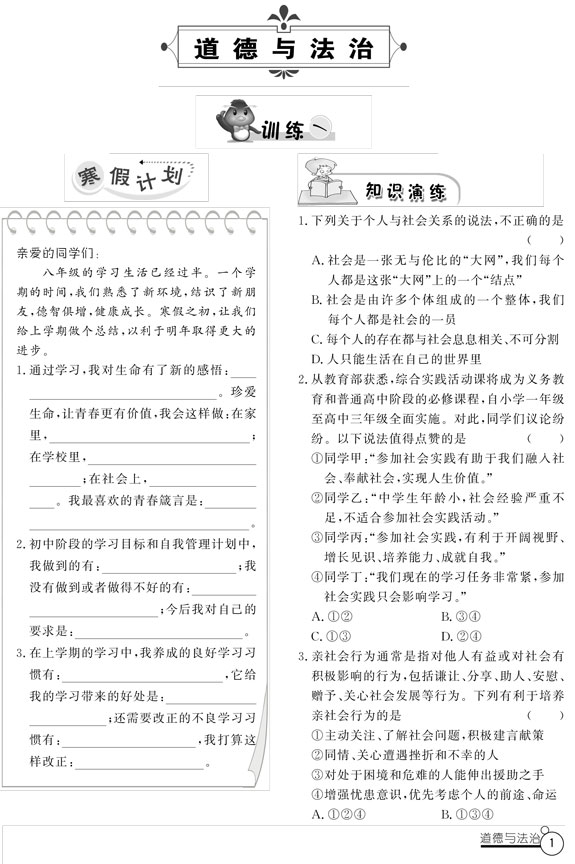 道德与法治
训练一
寒假计划
亲爱的同学们:
八年级的学习生活已经过半。一个学
期的时间,我们熟悉了新环境,结识了新朋
友,德智俱增,健康成长。寒假之初,让我们
给上学期做个总结,以利于明年取得更大的
进步。
1.通过学习,我对生命有了新的感悟:____
____________________。珍爱
生命,让青春更有价值,我会这样做:在家
里,____________________;
在学校里,____________________
________;在社会上,____________
____。我最喜欢的青春箴言是:________
____________________。
2.初中阶段的学习目标和自我管理计划中,
我做到的有:________________;我
没有做到或者做得不好的有:________
________________;今后我对自己的
要求是:____________________。
3.在上学期的学习中,我养成的良好学习习
惯有:____________________,它给
我的学习带来的好处是:____________
____________;还需要改正的不良学习习
惯有:________________,我打算这
样改正:________________。
知识演练
1.下列关于个人与社会关系的说法,不正确的是
( )
A.社会是一张无与伦比的“大网”,我们每个
人都是这张“大网”上的一个“结点”
B.社会是由许多个体组成的一个整体,我们
每个人都是社会的一员
C.每个人的存在都与社会息息相关、不可分割
D.人只能生活在自己的世界里
2.从教育部获悉,综合实践活动课将成为义务教
育和普通高中阶段的必修课程,自小学一年级
至高中三年级全面实施。对此,同学们议论纷
纷。以下说法值得点赞的是 ( )
①同学甲:“参加社会实践有助于我们融入社
会、奉献社会,实现人生价值。”
②同学乙:“中学生年龄小,社会经验严重不
足,不适合参加社会实践活动。”
③同学丙:“参加社会实践,有利于开阔视野、
增长见识、培养能力、成就自我。”
④同学丁:“我们现在的学习任务非常紧,参加
社会实践只会影响学习。”
A.①② B.③④
C.①③ D.②④
3.亲社会行为通常是指对他人有益或对社会有
积极影响的行为,包括谦让、分享、助人、安慰、
赠予、关心社会发展等行为。下列有利于培养
亲社会行为的是 ( )
①主动关注、了解社会问题,积极建言献策
②同情、关心遭遇挫折和不幸的人
③对处于困境和危难的人能伸出援助之手
④增强忧患意识,优先考虑个人的前途、命运
A.①②④ B.①③④
道德与法治 1